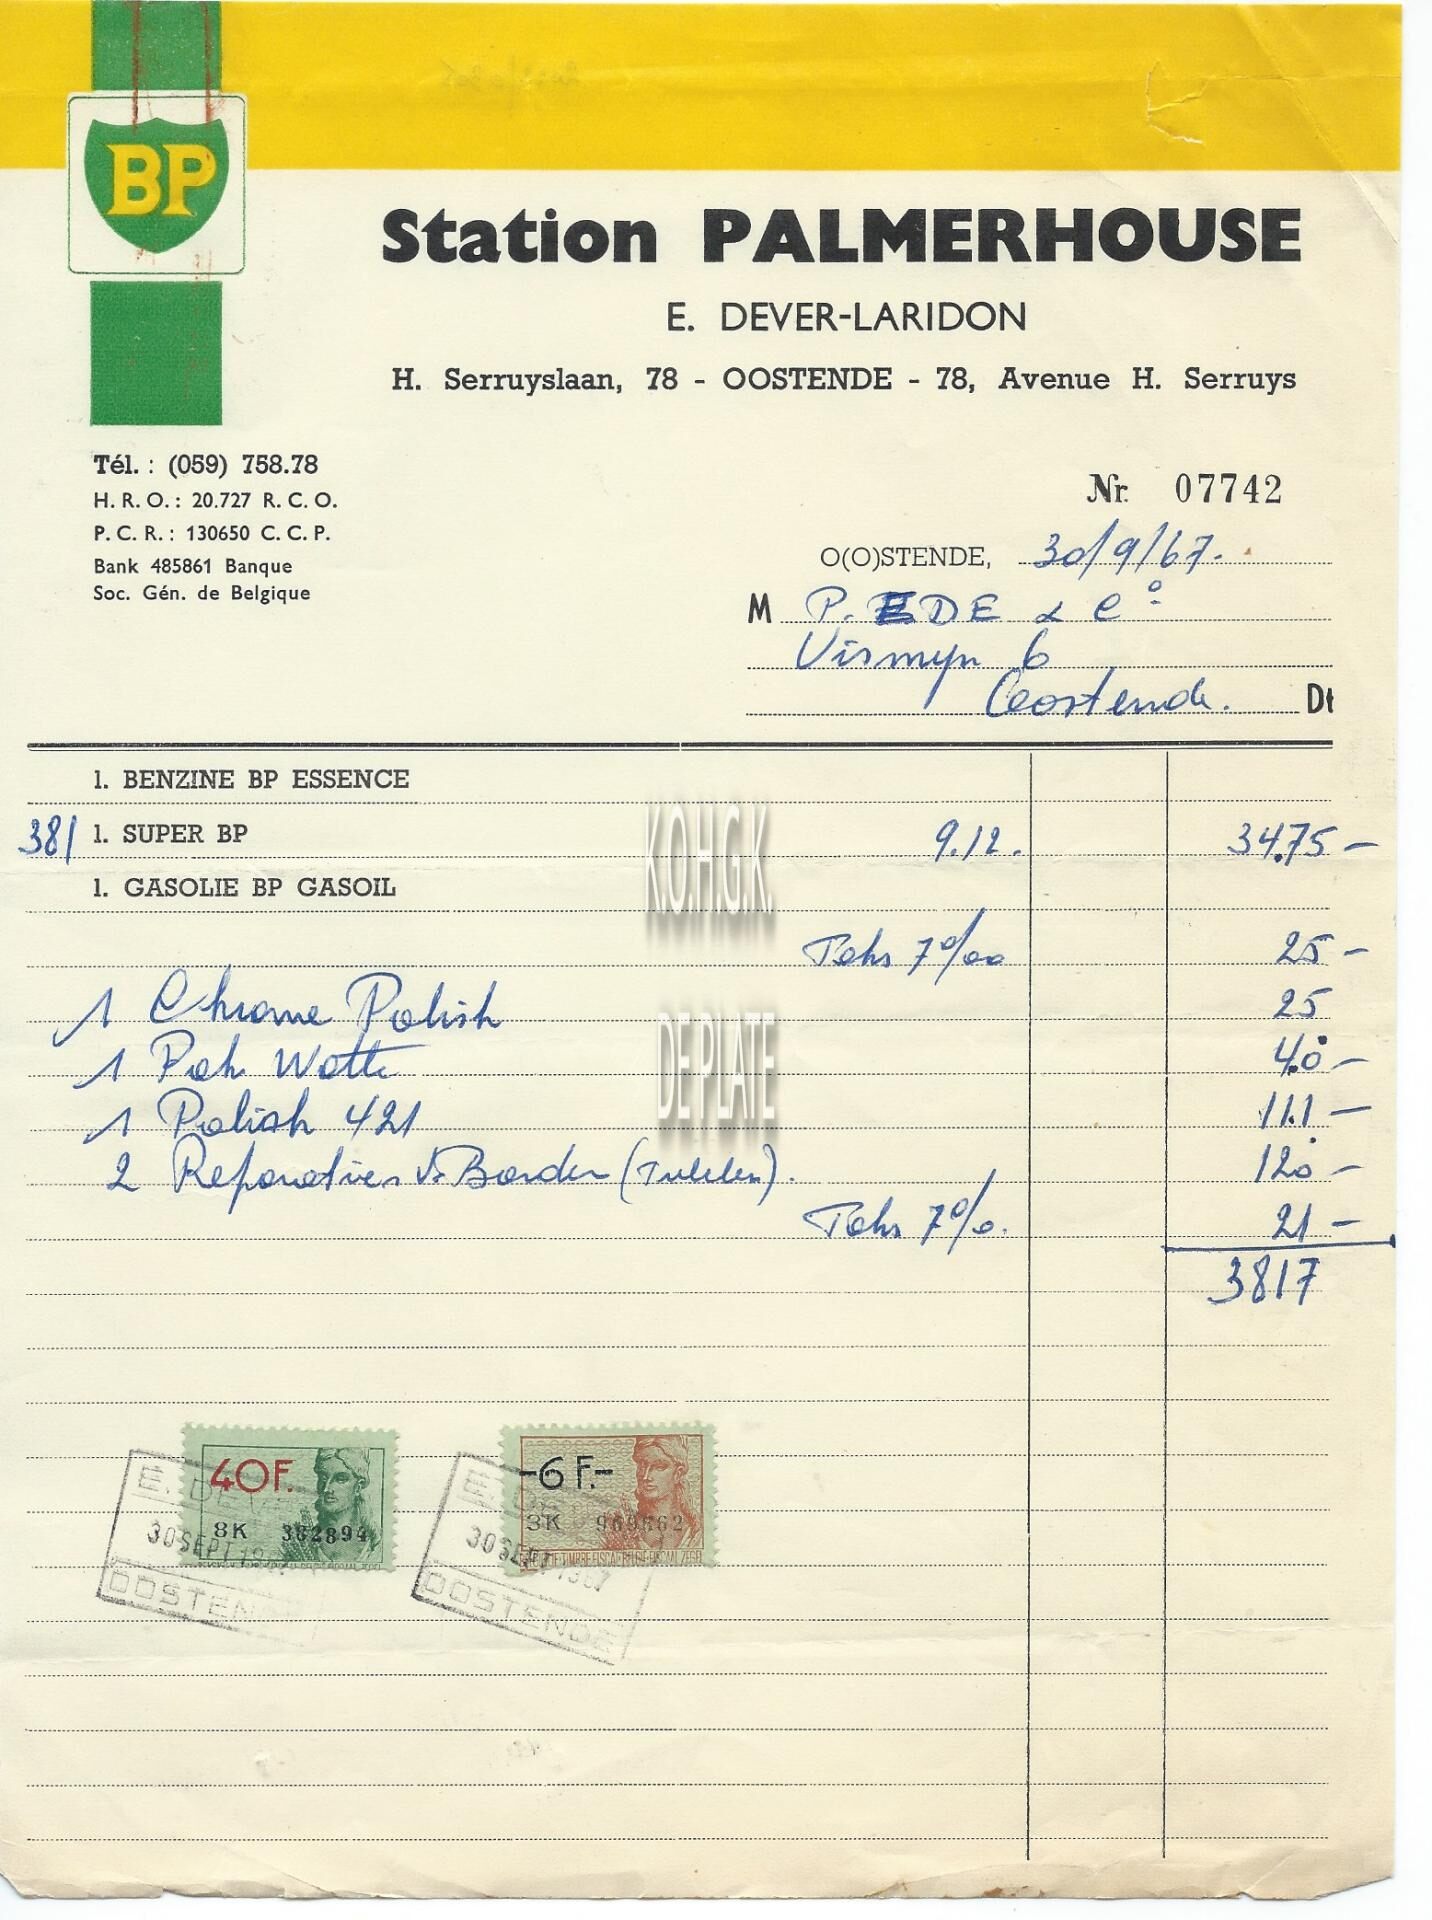 BP
Station PALMERHOUSE
E. DEVER-LARIDON
H. Serruyslaan, 78 - OOSTENDE - 78, Avenue H. Serruys
Tél. : (059) 758.78
H. R. O. : 20.727 R. C. O.
P. C. R. : 130650 C. C. P.
Bank 485861 Banque
Soc. Gén. de Belgique
Nr. 07742
O(O)STENDE, 30/9/67.
M P. EDE & Co
Vismyn 6
Oostende. Dt
l. BENZINE BP ESSENCE
381 l. SUPER BP 9.12. 34.75 -
l. GASOLIE BP GASOIL
K.O.H.G.K.
Taks 7 o/oo 25 -
1 Chrome Polish 25
DE PLATE
1 Pak Watte 40 -
1 Polish 421 111 -
2 Reparaties v. Banden 120 -
Taks 7 %. 21 -
3817
40F. 8K 382894
-6 F.- 3K
E. DE
30 SEPT 19
OOSTEN
E. DE
30 SEPT 1967
OOSTENDE